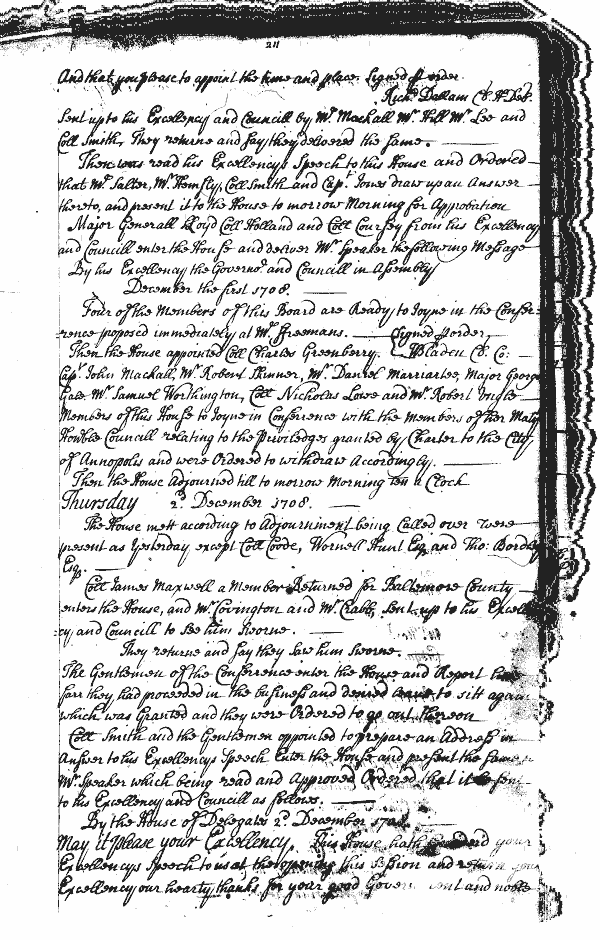 211
And that you please to appoint the time and place. Signed p order.
Richd Dallam Cl. H Del.
Sent up to his Excellency and Councill by Mr. Mackall Mr. Hill Mr. Lee and
Coll Smith, They returne and say they delivered the same.
Then was read his Excellencys Speech to this House and Ordered
that Mr. Salter, Mr. Hemsly, Coll Smith and Capt. Jones draw up an Answer
thereto, and present it to the House to morrow Morning for Approbation
Major Generall Lloyd Coll Holland and Coll Coursey from his Excellency
and Councill enter the House and deliver Mr. Speaker the following Message
By his Excellency the Governor. and Councill in Assembly
December the first 1708.
Four of the Members of this Board are Ready to Joyne in the Confer=
rence proposed immediately at Mr. Freemans. Signed p order
Then the House appointed Coll Charles Greenberry. W Bladen Cl. Co:
Capt. John Mackall, Mr. Robert Skinner, Mr. Daniel Marriartee, Major George
Gale Mr. Samuel Worthington, Coll Nicholas Lowe and Mr. Robert Ungle
Members of this House to Joyne in Conference with the Members of her Maty
Honble Councill relating to the Priviledges granted by Charter to the City
of Annopolis and were Ordered to withdraw Accordingly.
Then the House Adjourned till to morrow Morning ten a Clock
Thursday 2d. December 1708.
The House mett according to Adjournment being Called over were
present as Yesterday except Coll Coode, Wornell Hunt Esqr and Tho: Bordley
Esqr.
Coll James Maxwell a Member Returned for Baltemore County
enters the House, and Mr. Covington and Mr. Crabb, sent up to his Excell
cy, and Councill to See him Sworne.
They returne and say they Saw him Sworne.
The Gentlemen of the Conferrence enter the House and Report how
farr they had proceeded in the business and desired leave to sitt again
which was Granted and they were Ordered to go out thereon
Coll Smith and the Gentlemen appointed to prepare an Address in
Answer to his Excellencys Speech Enter the House and present the same
Mr. Speaker which being read and Approved Ordered that it be sent
to his Excellency and Councill as follows.
By the House of Delegates 2d. December 1708.
May it please your Excellency, This House hath your
Excellencys Speech to us at the opening this Session and return your
Excellency our hearty thanks for your good and noble